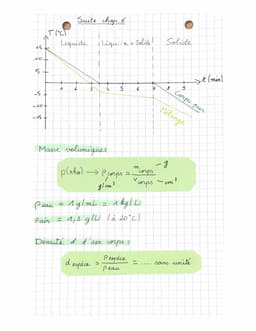 Suite chap. 6
T (°C)
Liquide Liqui e + Solide Solide
+15
+10
+5
t (min)
-5
-10
-15
Corps pur
Mélange
Masse volumique :
ρ(rhô) → ρ corps = m corps / V corps
g
g/cm³
cm³
ρ eau = 1 g/mL = 1 kg/L
ρ air = 1,3 g/L (à 20°C)
Densité d d'un corps :
d espèce = ρ espèce / ρ eau = .... sans unité